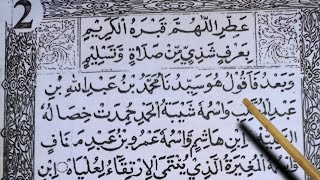 2
عَطِّرِ اللّٰهُمَّ قَبْرَهُ الْكَرِيْمَ
بِعَرْفٍ شَذِيٍّ مِنْ صَلَاةٍ وَتَسْلِيْمٍ
وَبَعْدُ فَأَقُوْلُ هُوَ سَيِّدُنَا مُحَمَّدُ بْنُ عَبْدِ اللّٰهِ بْنِ
عَبْدِ وَاسْمُهُ شَيْبَةُ الْحَمْدِ حُمِدَتْ خِصَالُهُ
ابْنِ هَاشِمٍ وَاسْمُهُ عَمْرُو بْنُ عَبْدِ مَنَافٍ
وَاسْمُهُ الْمُغِيْرَةُ الَّذِيْ يُنْتَمَى الْاِرْتِقَاءُ لِعُلْيَاهُ ابْنِ